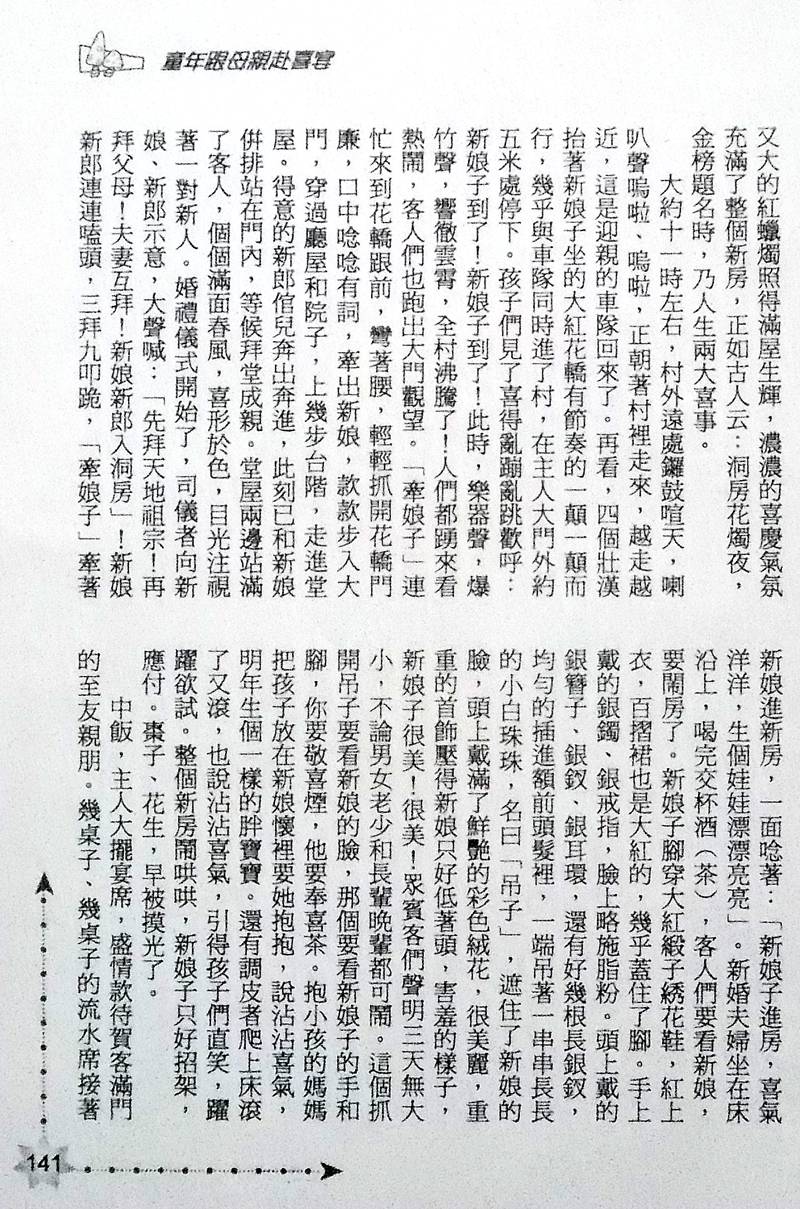 童年跟母親赴喜宴
又大的紅蠟燭照得滿屋生輝，濃濃的喜慶氣氛
充滿了整個新房，正如古人云：洞房花燭夜，
金榜題名時，乃人生兩大喜事。
大約十一時左右，村外遠處鑼鼓喧天，喇
叭聲嗚啦、嗚啦，正朝著村裡走來，越走越
近，這是迎親的車隊回來了。再看，四個壯漢
抬著新娘子坐的大紅花轎有節奏的一顛一顛而
行，幾乎與車隊同時進了村，在主人大門外約
五米處停下。孩子們見了喜得亂蹦亂跳歡呼：
新娘子到了！新娘子到了！此時，樂器聲，爆
竹聲，響徹雲霄，全村沸騰了！人們都踴來看
熱鬧，客人們也跑出大門觀望。「牽娘子」連
忙來到花轎跟前，彎著腰，輕輕抓開花轎門
廉，口中唸唸有詞，牽出新娘，款款步入大
門，穿過廳屋和院子，上幾步台階，走進堂
屋。得意的新郎倌兒奔出奔進，此刻已和新娘
併排站在門內，等候拜堂成親。堂屋兩邊站滿
了客人，個個滿面春風，喜形於色，目光注視
著一對新人。婚禮儀式開始了，司儀者向新
娘、新郎示意，大聲喊：「先拜天地祖宗！再
拜父母！夫妻互拜！新娘新郎入洞房」！新娘
新郎連連嗑頭，三拜九叩跪，「牽娘子」牽著
新娘進新房，一面唸著：「新娘子進房，喜氣
洋洋，生個娃娃漂漂亮亮」。新婚夫婦坐在床
沿上，喝完交杯酒（茶），客人們要看新娘，
要鬧房了。新娘子腳穿大紅緞子綉花鞋，紅上
衣，百摺裙也是大紅的，幾乎蓋住了腳。手上
戴的銀鐲、銀戒指，臉上略施脂粉。頭上戴的
銀簪子、銀釵、銀耳環，還有好幾根長銀釵，
均勻的插進額前頭髮裡，一端吊著一串串長長
的小白珠珠，名曰「吊子」，遮住了新娘的
臉，頭上戴滿了鮮艷的彩色絨花，很美麗，重
重的首飾壓得新娘只好低著頭，害羞的樣子，
新娘子很美！很美！眾賓客們聲明三天無大
小，不論男女老少和長輩晚輩都可鬧。這個抓
開吊子要看新娘的臉，那個要看新娘子的手和
腳，你要敬喜煙，他要奉喜茶。抱小孩的媽媽
把孩子放在新娘懷裡要她抱抱，說沾沾喜氣，
明年生個一樣的胖寶寶。還有調皮者爬上床滾
了又滾，也說沾沾喜氣，引得孩子們直笑，躍
躍欲試。整個新房鬧哄哄，新娘子只好招架，
應付。棗子、花生，早被摸光了。
中飯，主人大擺宴席，盛情款待賀客滿門
的至友親朋。幾桌子、幾桌子的流水席接著
141